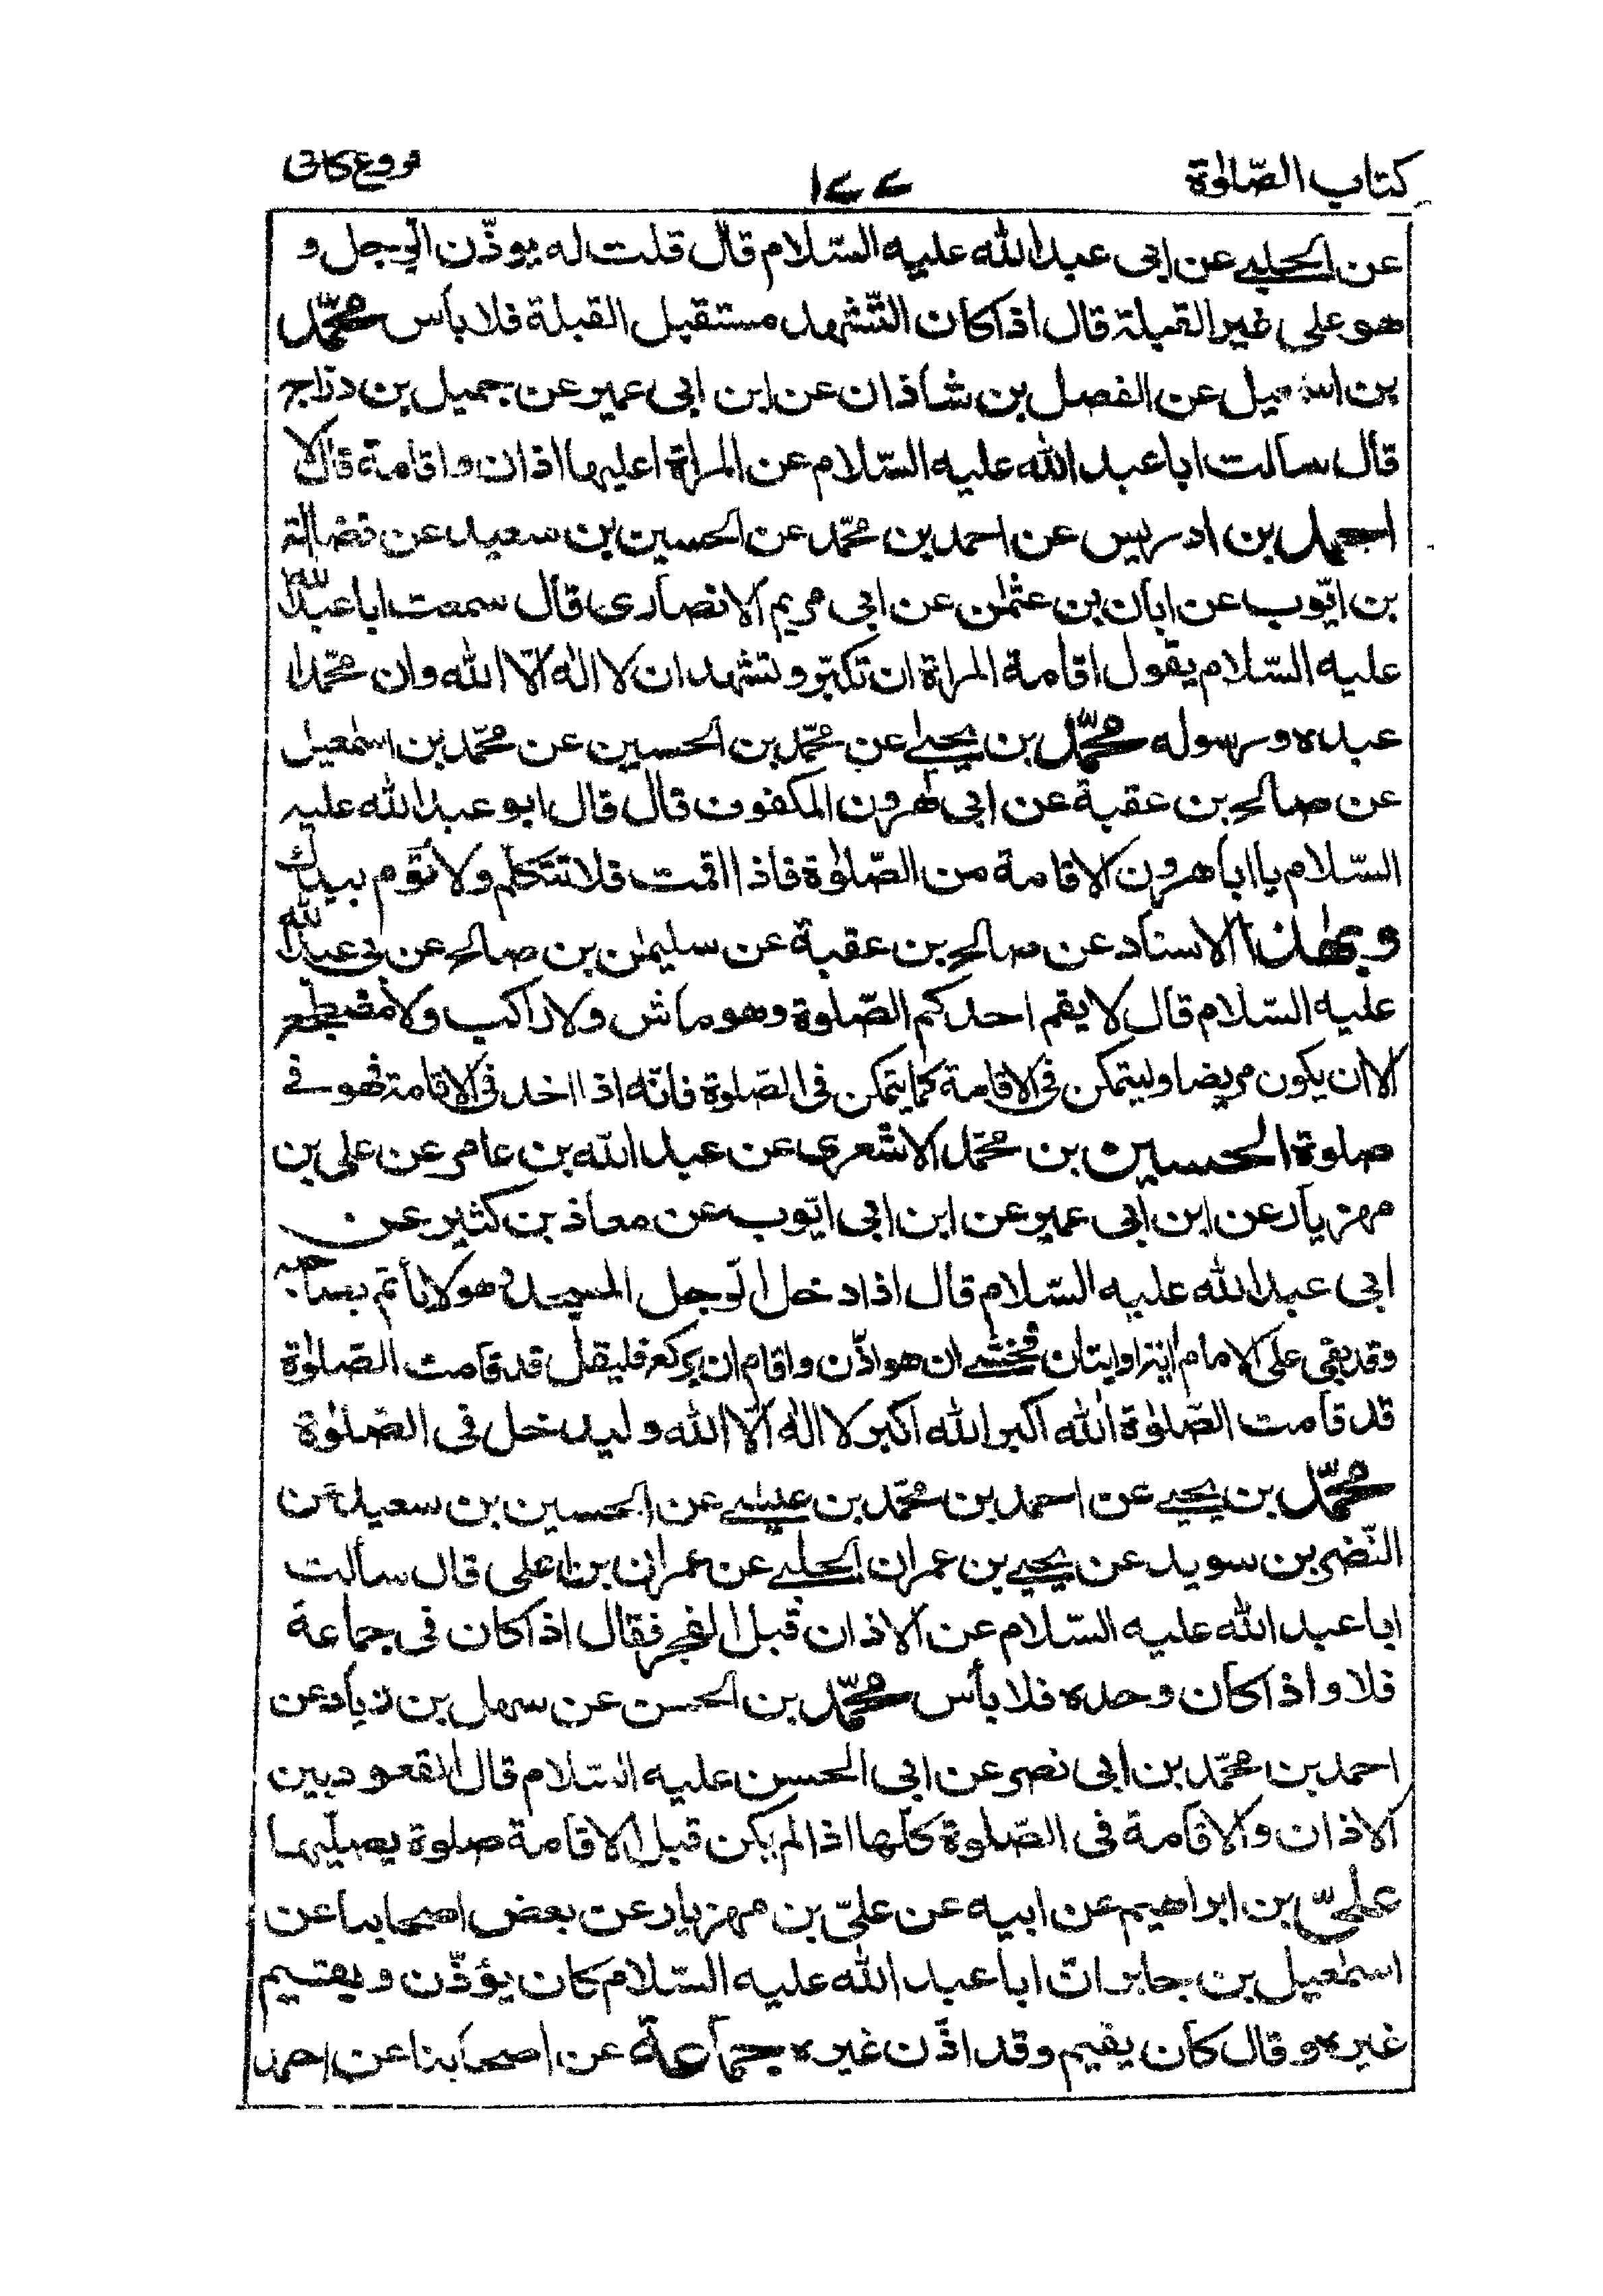 كتاب الصّلوٰة ١٤٤ فروع كافى
عن الحلبے عن ابى عبد الله عليه السّلام قال قلت له يوذّن الرّجل و
هو على غير القبلة قال اذا كان التّشهد مستقبل القبلة فلا بأس محمّد
بن اسمعيل عن الفضل بن شاذان عن ابن ابى عمير عن جميل بن درّاج
قال سالت ابا عبد الله عليه السّلام عن المراة اعليها اذان و اقامة قال لا
احمد بن ادريس عن احمد بن محمّد عن الحسين بن سعيد عن فضالة
بن ايّوب عن ابان بن عثمٰن عن ابى مريم الانصارى قال سمعت ابا عبد الله
عليه السّلام يقول اقامة المراة ان تكبّر و تشهد ان لا اله الّا الله وان محمّدا
عبده ورسوله محمّد بن يحيےٰ عن محمّد بن الحسين عن محمّد بن اسمٰعيل
عن صالح بن عقبة عن ابى هرون المكفوف قال قال ابو عبد الله عليه
السّلام يا ابا هرون الاقامة من الصّلوٰة فاذا اقمت فلا تتكلم ولا تؤم بيدك
وبهٰذا الاسناد عن صالح بن عقبة عن سليمٰن بن صالح عن ابى عبد الله
عليه السّلام قال لا يقم احدكم الصّلوة وهو ماش ولا راكب ولا مضطجع
الا ان يكون مريضا وليتمكن فى الاقامة كما يتمكن فى الصّلوة فانّه اذا اخذ فى الاقامة فهو فے
صلوة الحسين بن محمّد الاشعرى عن عبد الله بن عامر عن على بن
مهزيار عن ابن ابى عمير عن ابن ابى ايّوب عن معاذ بن كثير عن
ابى عبد الله عليه السّلام قال اذا دخل الرّجل المسجد وهو لا يأتم بصاحبه
وقد بقى على الامام اية او ايتان فخشے ان هو اذّن و اقام ان يركع فليقل قد قامت الصّلوٰة
قد قامت الصّلوٰة الله اكبر الله اكبر لا اله الّا الله و ليدخل فى الصّلوٰة
محمّد بن يحيے عن احمد بن محمّد بن عيسٰے عن الحسين بن سعيد عن
النّضر بن سويد عن يحيے بن عمران الحلبے عن عمران بن على قال سألت
ابا عبد الله عليه السّلام عن الاذان قبل الفجر فقال اذا كان فى جماعة
فلا و اذا كان وحده فلا بأس محمّد بن الحسن عن سهل بن زياد عن
احمد بن محمّد بن ابى نصر عن ابى الحسن عليه السّلام قال القعود بين
الاذان والاقامة فى الصّلوة كلّها اذا لم يكن قبل الاقامة صلوة يصلّيها
علىّ بن ابراهيم عن ابيه عن علىّ بن مهزيار عن بعض اصحابنا عن
اسمٰعيل بن جابر انّ ابا عبد الله عليه السّلام كان يؤذّن و يقيم
غيره و قال كان يقيم وقد اذّن غيره جماعة عن اصحابنا عن احمد